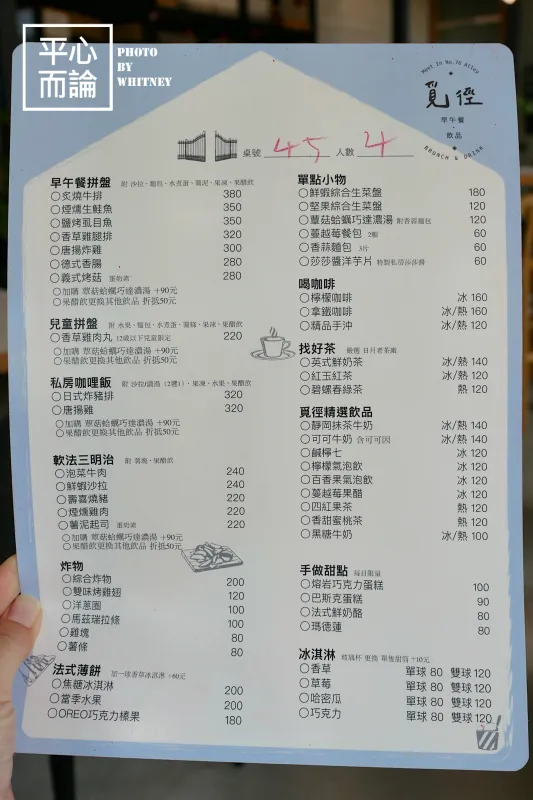 平心
而論
PHOTO
BY
WHITNEY
Meet In No.16 Alley
覓徑
早午餐
飲品
BRUNCH & DRINK
桌號 45 人數 4
早午餐拼盤 附 沙拉、麵包、水煮蛋、薯泥、果凍、果醋飲
〇炙燒牛排 380
〇煙燻生鮭魚 350
〇鹽烤虱目魚 350
〇香草雞腿排 320
〇唐揚炸雞 300
〇德式香腸 280
〇義式烤菇 蛋奶素 280
〇加購 蕈菇蛤蠣巧達濃湯 +90元
〇果醋飲更換其他飲品 折抵50元
兒童拼盤 附 水果、麵包、水煮蛋、薯條、果凍、果醋飲
〇香草雞肉丸 12歲以下兒童限定 220
〇加購 蕈菇蛤蠣巧達濃湯 +90元
〇果醋飲更換其他飲品 折抵50元
私房咖哩飯 附 沙拉/濃湯 (2選1)、果凍、水果、果醋飲
〇日式炸豬排 320
〇唐揚雞 320
〇加購 蕈菇蛤蠣巧達濃湯 +90元
〇果醋飲更換其他飲品 折抵50元
軟法三明治 附 薯塊、果醋飲
〇泡菜牛肉 240
〇鮮蝦沙拉 240
〇壽喜燒豬 220
〇煙燻雞肉 220
〇薯泥起司 蛋奶素 220
〇加購 蕈菇蛤蠣巧達濃湯 +90元
〇果醋飲更換其他飲品 折抵50元
炸物
〇綜合炸物 200
〇雙味烤雞翅 120
〇洋蔥圈 100
〇馬茲瑞拉條 100
〇雞塊 80
〇薯條 80
法式薄餅 加一球香草冰淇淋 +60元
〇焦糖冰淇淋 200
〇當季水果 200
〇OREO巧克力榛果 180
單點小物
〇鮮蝦綜合生菜盤 180
〇堅果綜合生菜盤 120
〇蕈菇蛤蠣巧達濃湯 附香蒜麵包 120
〇蔓越莓餐包 2顆 60
〇香蒜麵包 3片 60
〇莎莎醬洋芋片 特製私房莎莎醬 60
喝咖啡
〇檸檬咖啡 冰 160
〇拿鐵咖啡 冰/熱 160
〇精品手沖 冰/熱 120
找好茶 嚴選 日月老茶廠
〇英式鮮奶茶 冰/熱 140
〇紅玉紅茶 冰/熱 120
〇碧螺春綠茶 熱 120
覓徑精選飲品
〇靜岡抹茶牛奶 冰/熱 140
〇可可牛奶 含可可因 冰/熱 140
〇鹹檸七 冰 120
〇檸檬氣泡飲 冰 120
〇百香果氣泡飲 冰 120
〇蔓越莓果醋 冰 120
〇四紅果茶 熱 120
〇香甜蜜桃茶 熱 120
〇黑糖牛奶 冰/熱 100
手做甜點 每日限量
〇熔岩巧克力蛋糕 100
〇巴斯克蛋糕 90
〇法式鮮奶酪 80
〇瑪德蓮 80
冰淇淋 玻璃杯 更換 單隻甜筒 +10元
〇香草 單球 80 雙球 120
〇草莓 單球 80 雙球 120
〇哈密瓜 單球 80 雙球 120
〇巧克力 單球 80 雙球 120